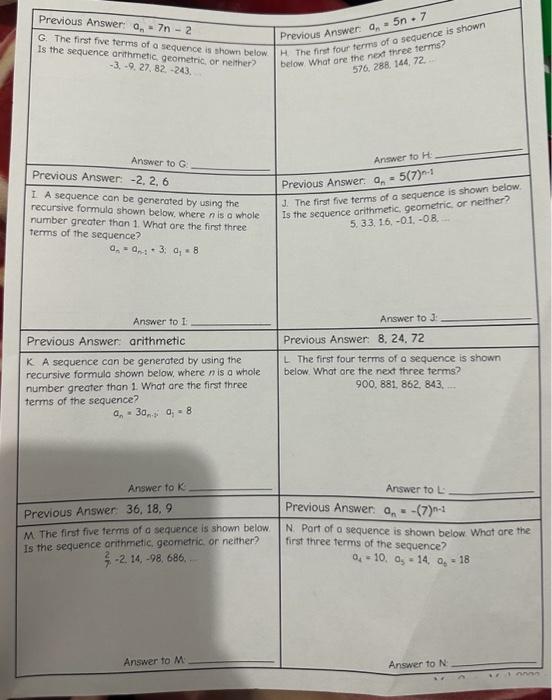 Previous Answer: aₙ = 7n - 2
G. The first five terms of a sequence is shown below.
Is the sequence arithmetic, geometric, or neither?
-3, -9, 27, 82, -243, ...
Answer to G:
Previous Answer: aₙ = 5n + 7
H. The first four terms of a sequence is shown
below. What are the next three terms?
576, 288, 144, 72, ...
Answer to H:
Previous Answer: -2, 2, 6
I. A sequence can be generated by using the
recursive formula shown below, where n is a whole
number greater than 1. What are the first three
terms of the sequence?
aₙ = aₙ₋₁ + 3; a₁ = 8
Answer to I:
Previous Answer: aₙ = 5(7)ⁿ⁻¹
J. The first five terms of a sequence is shown below.
Is the sequence arithmetic, geometric, or neither?
5, 3.3, 1.6, -0.1, -0.8, ...
Answer to J:
Previous Answer: arithmetic
K. A sequence can be generated by using the
recursive formula shown below, where n is a whole
number greater than 1. What are the first three
terms of the sequence?
aₙ = 3aₙ₋₁; a₁ = 8
Answer to K:
Previous Answer: 8, 24, 72
L. The first four terms of a sequence is shown
below. What are the next three terms?
900, 881, 862, 843, ...
Answer to L:
Previous Answer: 36, 18, 9
M. The first five terms of a sequence is shown below.
Is the sequence arithmetic, geometric, or neither?
2/7, -2, 14, -98, 686, ...
Answer to M:
Previous Answer: aₙ = -(7)ⁿ⁻¹
N. Part of a sequence is shown below. What are the
first three terms of the sequence?
a₄ = 10, a₅ = 14, a₆ = 18
Answer to N: